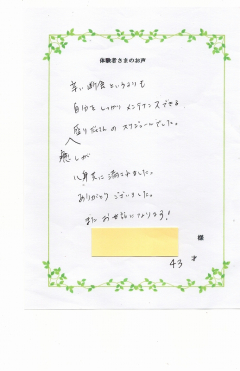 体験者さまのお声
辛い断食というよりも
自分をしっかりメンテナンスできる
盛りだくさんのスケジュールでした。
癒しが
心身共に満ちました。
ありがとうございました。
またお世話になります!
様
43 才